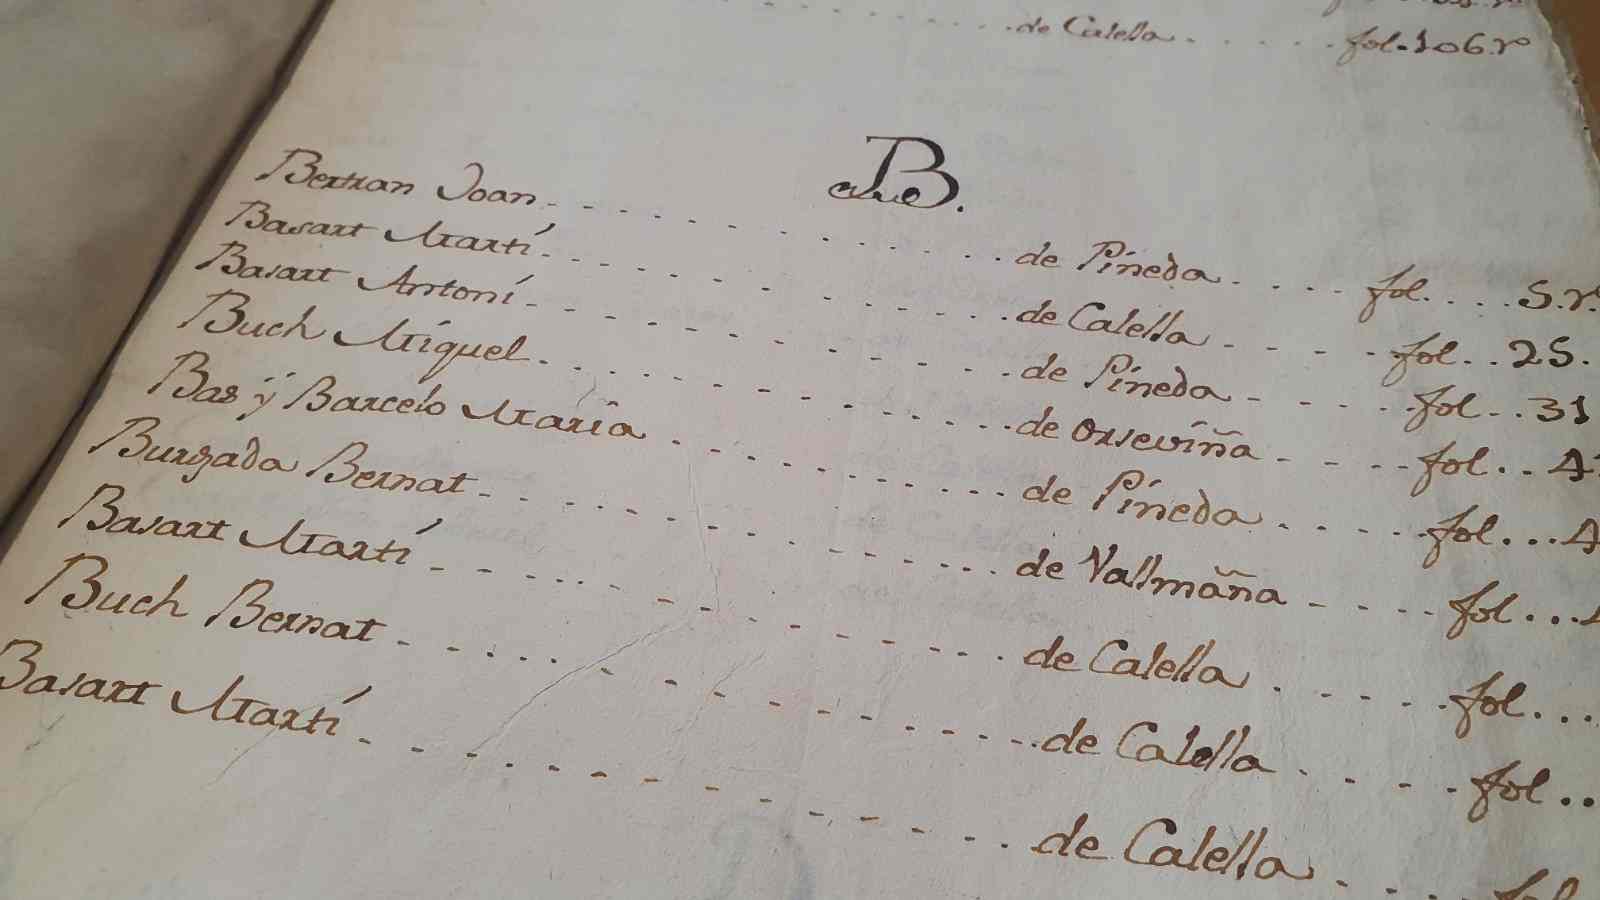 de Calella . . . . . fol. 106. rº
B.
Bertran Joan . . . . . de Pineda . . . . . fol. . . . 5. rº
Basart Martí . . . . . de Calella . . . . . fol. . . 25.
Basart Antoni . . . . . de Pineda . . . . . fol. . . 31
Buch Miquel . . . . . de Orseviña . . . . . fol. . .
Bas ÿ Barcelo Maria . . . . . de Pineda . . . . . fol. . .
Burgada Bernat . . . . . de Vallmãña . . . . . fol. . .
Basart Martí . . . . . de Calella . . . . . fol. . .
Buch Bernat . . . . . de Calella . . . . . fol. .
Basart Martí . . . . . de Calella . . . . .